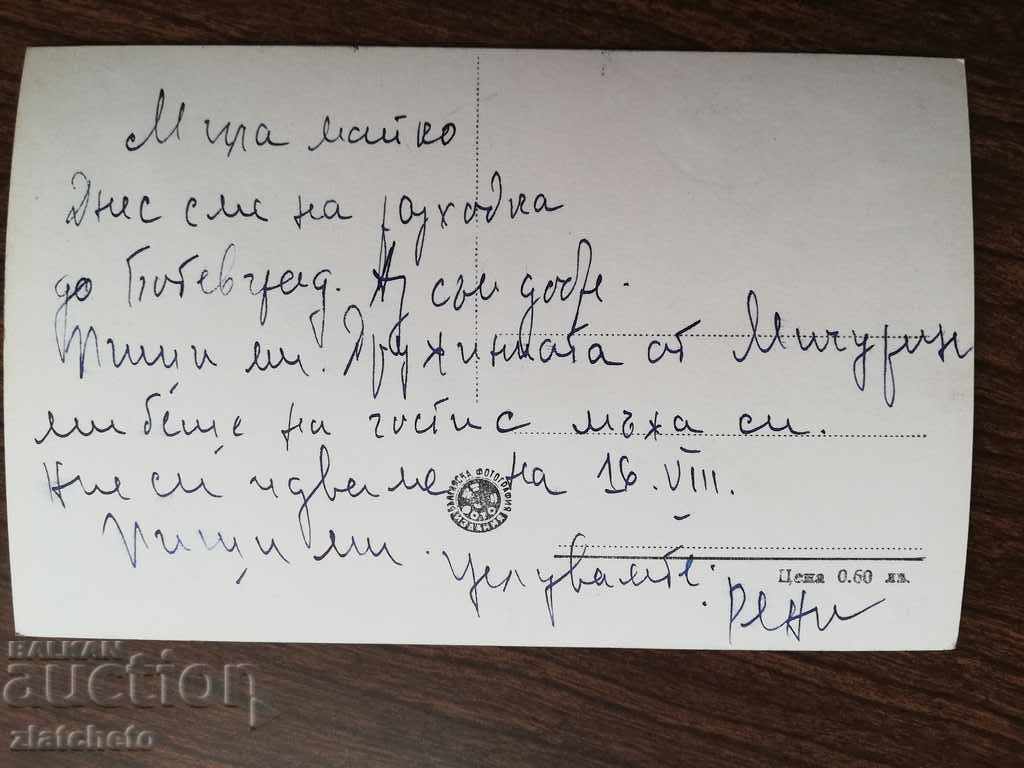 Мила майко
Днес сме на разходка
до Ботевград. Аз съм добре.
Пиши ми. Дружинката от Мичурин
ми беше на гости с мъжа си.
Ние си идваме на 16. VIII.
Пиши ми. Целувам те:
Рени
БЪЛГАРСКА ФОТОГРАФИЯ
Цена 0.60 лв.
BALKAN
auction
zlatcheto